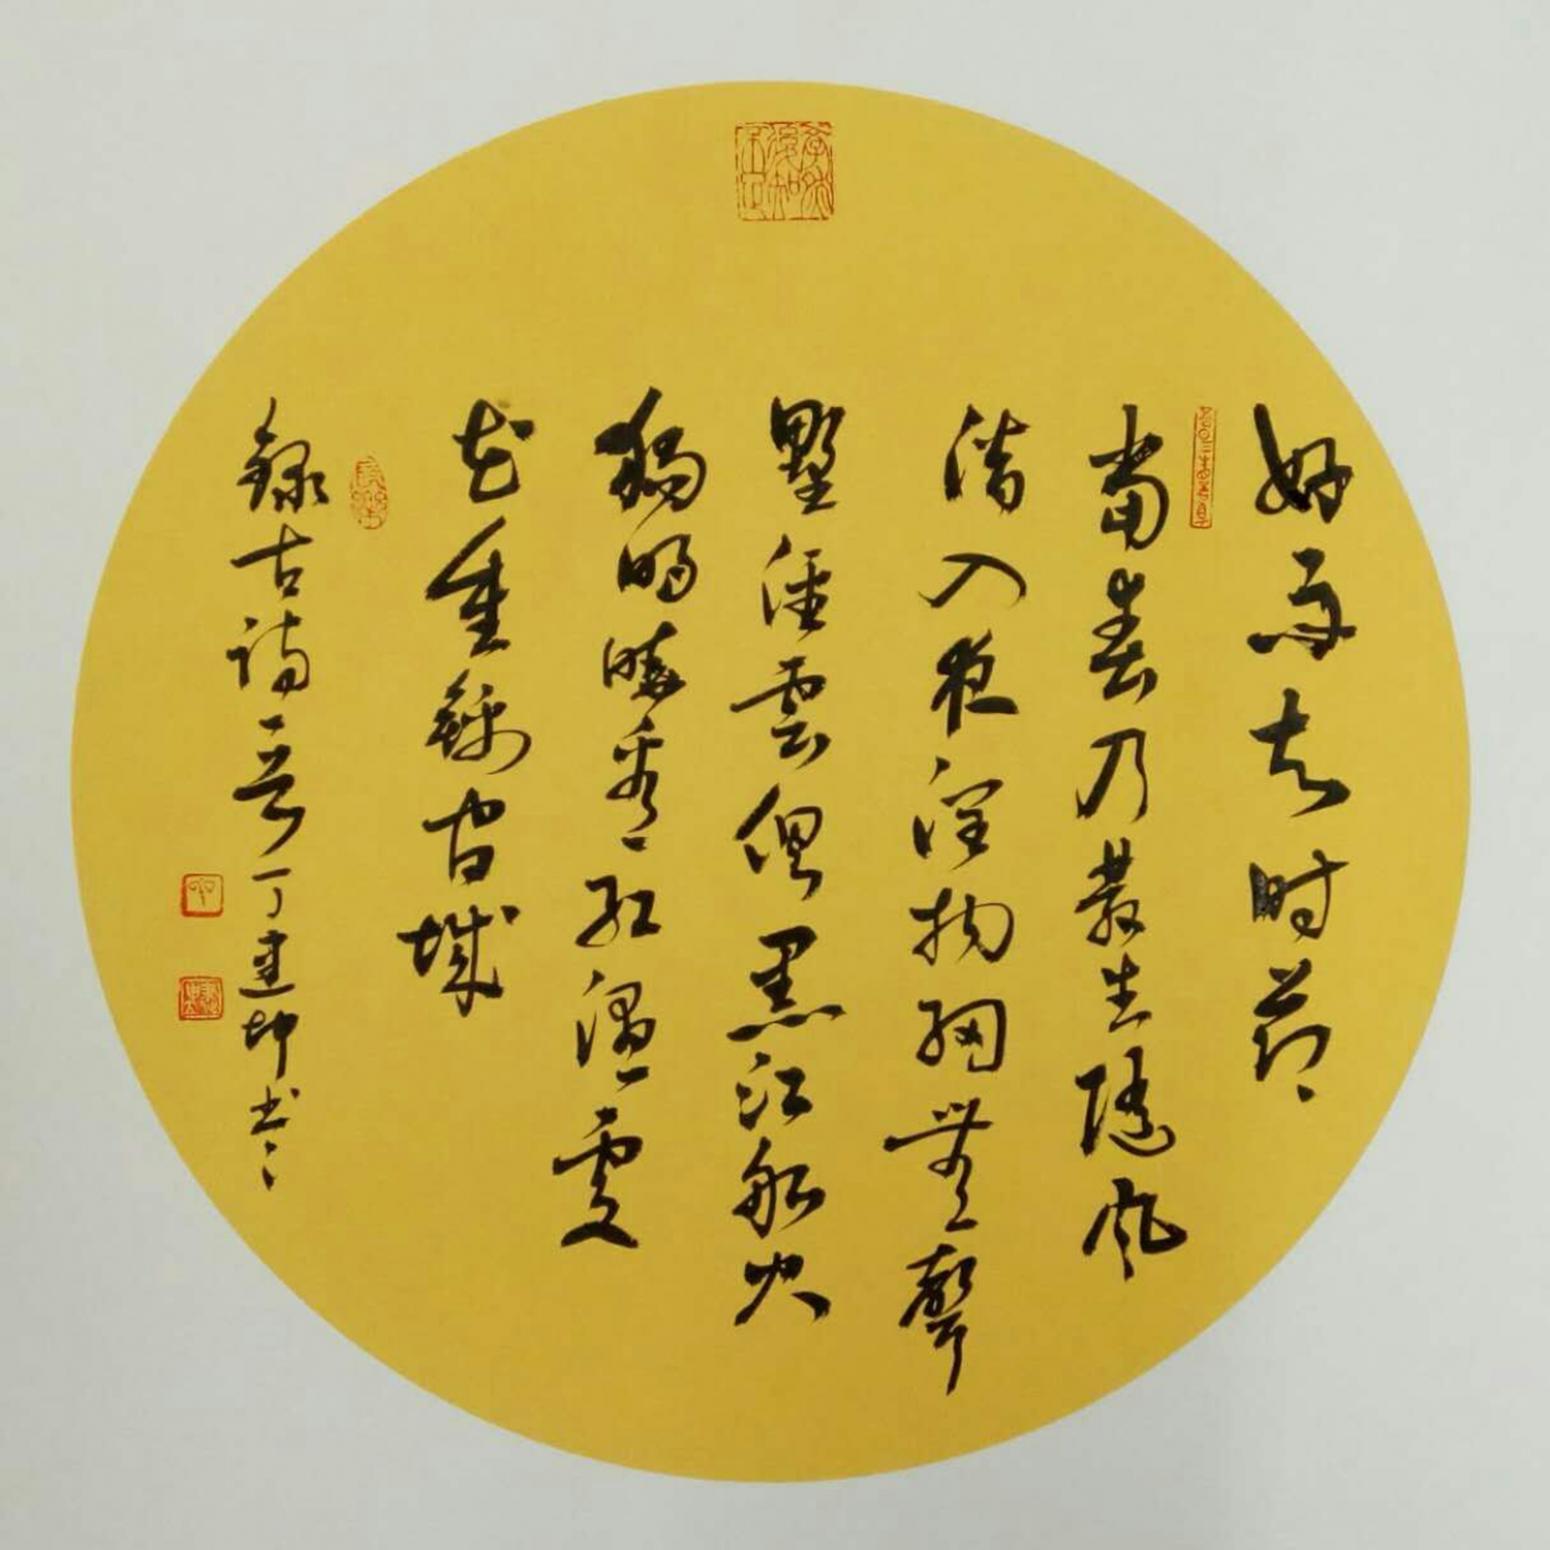 好雨知时节
当春乃发生随风
潜入夜润物细無聲
野径雲俱黑江船火
独明晓看红湿處
花重锦官城
録古诗一首丁建坤书